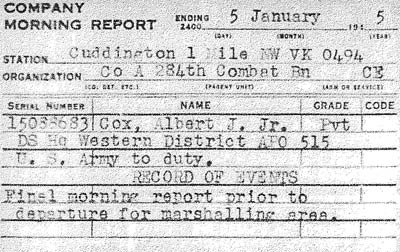 COMPANY
MORNING REPORT ENDING 2400 5 January 194 5
(DAY) (MONTH) (YEAR)
STATION Cuddington 1 Mile NW VK 0494
ORGANIZATION Co A 284th Combat Bn CE
(CO. DET. ETC.) (PARENT UNIT) (ARM OR SERVICE)
SERIAL NUMBER NAME GRADE CODE
15088683 Cox, Albert J. Jr. Pvt
DS Hq Western District APO 515
U. S. Army to duty.
RECORD OF EVENTS
Final morning report prior to
departure for marshalling area.